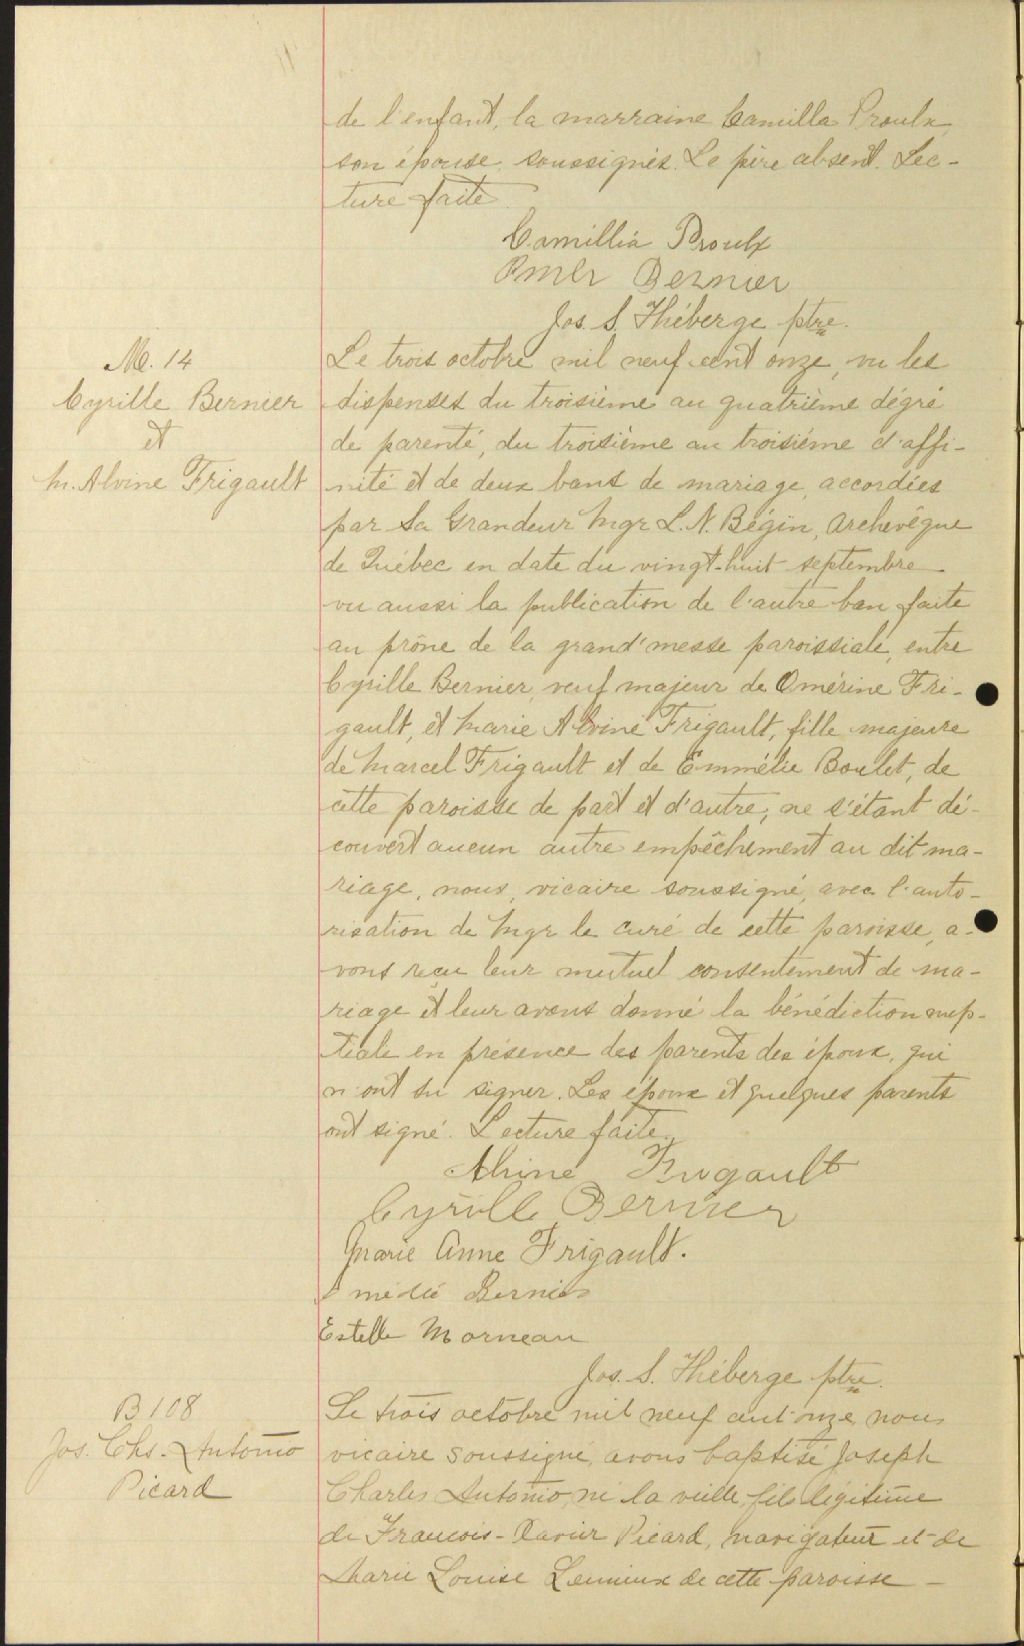 de l'enfant, la marraine Camilla Proulx,
son épouse, soussignés. Le père absent. Lec-
ture faite.
Camillia Proulx
Omer Bernier
Jos. S. Théberge ptre.
M. 14
Cyrille Bernier
et
M. Alvine Frigault
Le trois octobre mil neuf cent onze, vu les
dispenses du troisième au quatrième dégré
de parenté, du troisième au troisième d'affi-
nité et de deux bans de mariage, accordées
par Sa Grandeur Mgr L. N. Bégin, Archevêque
de Québec en date du vingt-huit septembre
vu aussi la publication de l'autre ban faite
au prône de la grand'messe paroissiale, entre
Cyrille Bernier, veuf majeur de Omérine Fri-
gault, et Marie Alvine Frigault, fille majeure
de Marcel Frigault et de Emmélie Boulet, de
cette paroisse de part et d'autre; ne s'étant dé-
couvert aucun autre empêchement au dit ma-
riage, nous, vicaire soussigné, avec l'auto-
risation de Mgr le curé de cette paroisse, a-
vons reçu leur mutuel consentement de ma-
riage et leur avons donné la bénédiction nup-
tiale en présence des parents des époux, qui
n'ont su signer. Les époux et quelques parents
ont signé. Lecture faite.
Alvine Frigault
Cyrille Bernier
Marie Anne Frigault.
Bernier
Estelle Morneau
Jos. S. Théberge ptre.
B 108
Jos. Chs. Antonio
Picard
Le trois octobre mil neuf cent onze, nous
vicaire soussigné, avons baptisé Joseph
Charles Antonio, né la veille, fils légitime
de François-Xavier Picard, navigateur et de
Marie Louise Lemieux de cette paroisse -